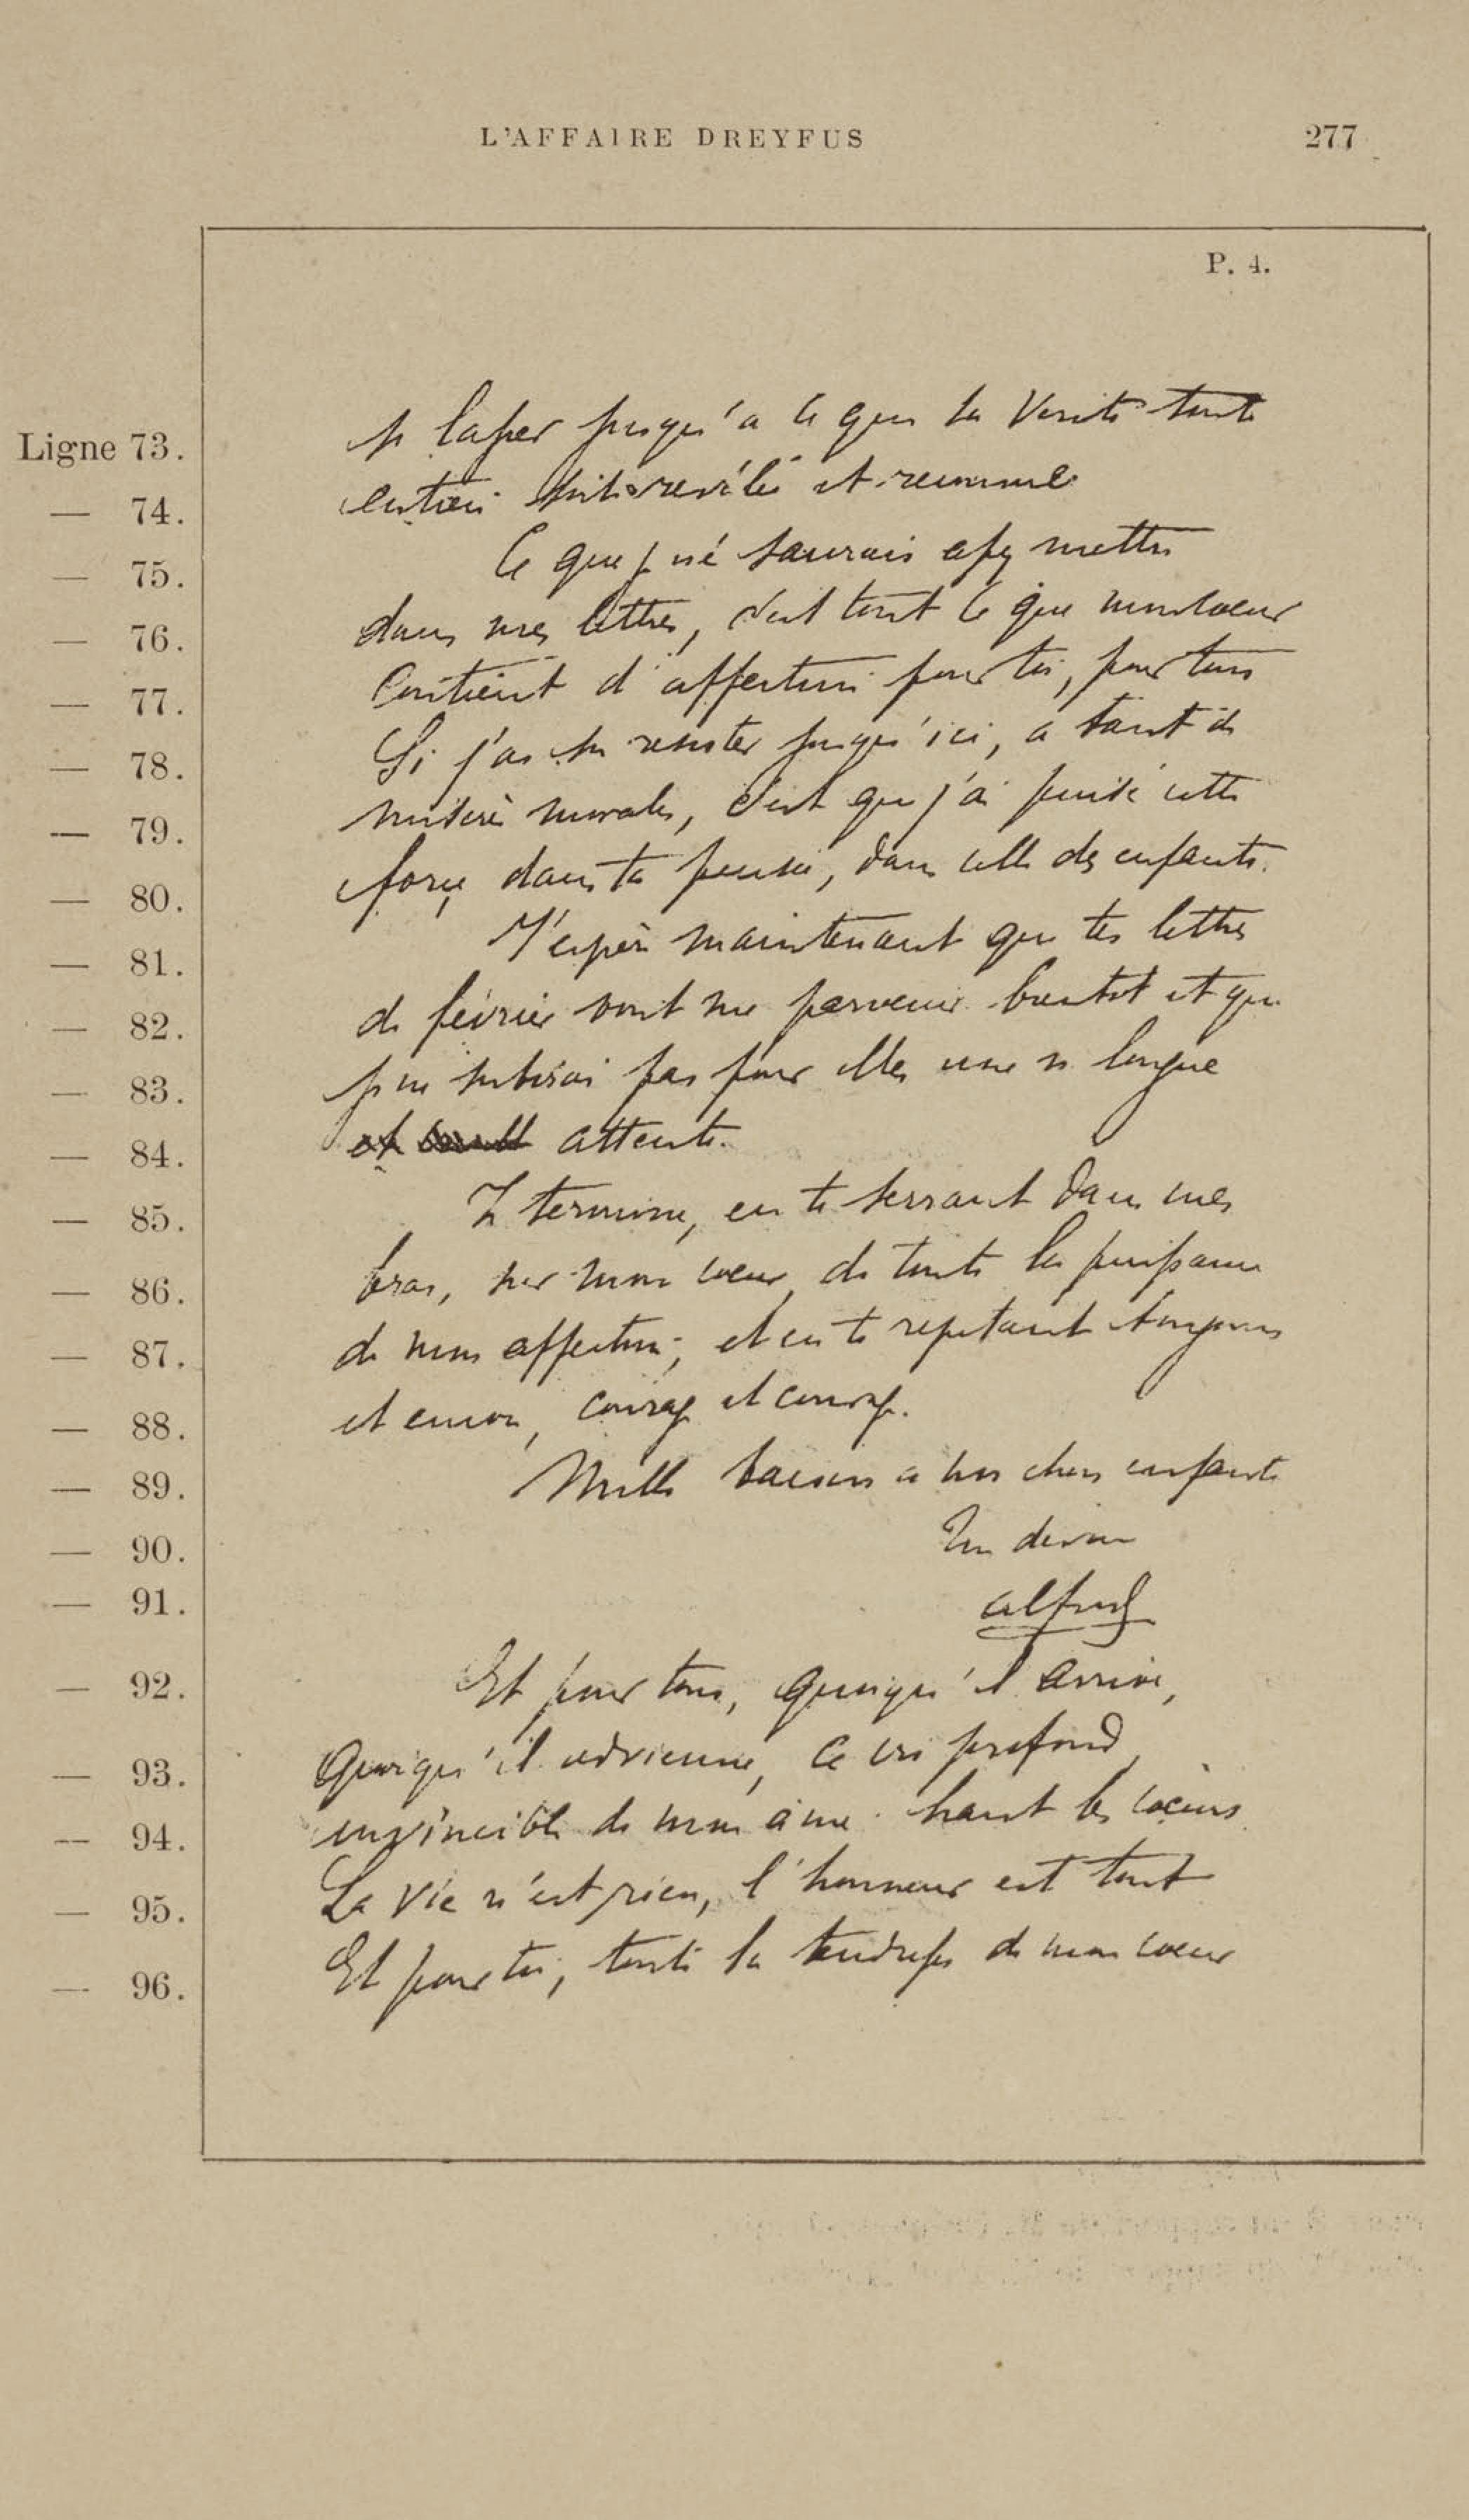 L'AFFAIRE DREYFUS 277
P. 4.
Ligne 73. se lasser jusqu'à ce que la Vérité toute
— 74. entière soit révélée et reconnue
— 75. Ce que je ne saurais assez mettre
— 76. dans mes lettres, c'est tout ce que mon cœur
— 77. contient d'affection pour toi, pour tous
— 78. Si j'ai pu resister jusqu'ici, à tant de
— 79. misères morales, c'est que j'ai puisé cette
— 80. force dans ta pensée, dans celle des enfants.
— 81. J'espère maintenant que tes lettres
— 82. de février vont me parvenir bientot et que
— 83. je ne subirai pas pour elles une si longue
— 84. et attente.
— 85. Je termine, en te serrant dans mes
— 86. bras, sur mon cœur, de toute la puissance
— 87. de mon affection, et en te repétant toujours
— 88. et encore, courage et courage.
— 89. Mille baisers à nos chers enfants
— 90. Ton devoué
— 91. Alfred
— 92. Et pour tous, quoiqu'il arrive,
— 93. quoiqu'il advienne, ce cri profond,
— 94. invincible de mon âme : haut les cœurs
— 95. La vie n'est rien, l'honneur est tout
— 96. Et pour toi, toute la tendresse de mon cœur